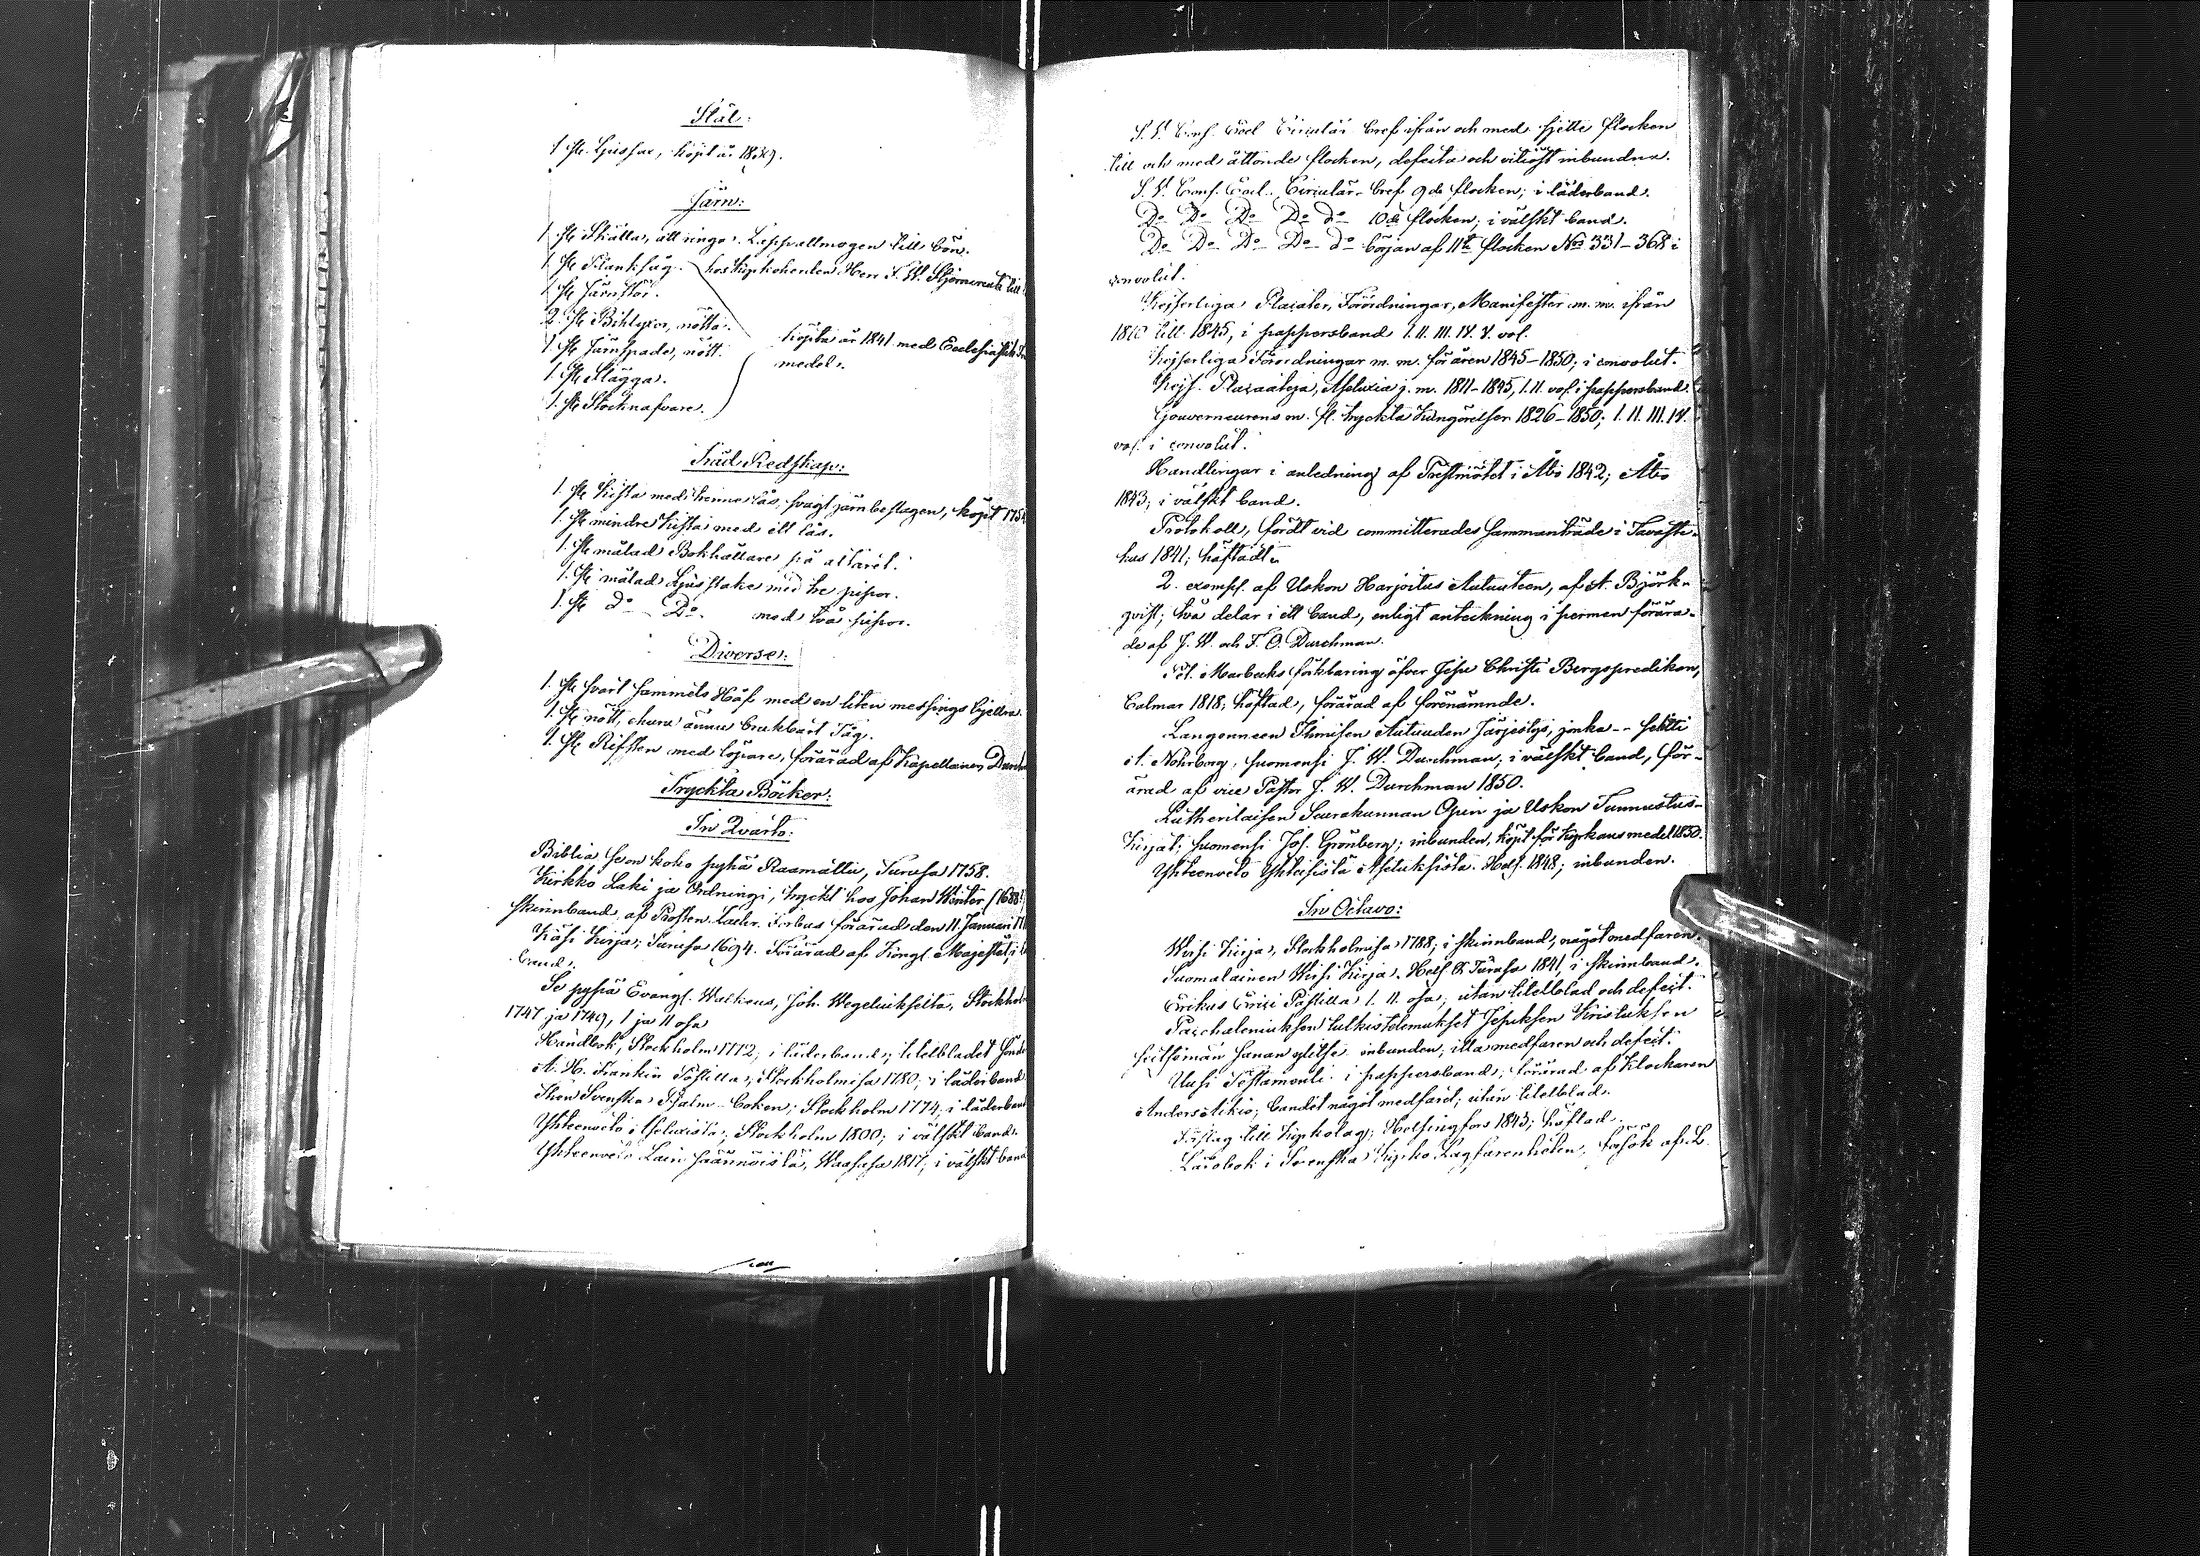 Stål:
1 St. Ljussax, köpt år 1849.
Järn:
1 St. Skälla, att ringa Lappallmogen till bön.
1 St. Planksåg. hos Kyrkoherden Herr F. W. Stjerncreutz till
1 St. Järnstör.
2 St. Bihlyxor, nötta.
1 St. Järnspade, nött. köpta år 1841 med Ecclesiastik
1 St. Slägga. medel.
1 St. Stocknafvare.
Träd Redskap:
1. St. Kista med tvenne lås, svagt järnbeslagen, köpt 175
1. St. mindre Kista med ett lås.
1. St. målad Bokhållare på altaret.
1. St. målad Ljusstake med tre pipor.
1. St. do Do. med två pipor.
Diverse:
1. St. svart sammets Håf med en liten messings bjellra.
1. St. nött, ehuru ännu brukbart Tåg.
1. St. Rifsten med löpare, förärad af Kapellanen Durch
Tryckta Böcker:
In Qvarto:
Biblia, se on koko pyhä Raamattu, Turusa 1758.
Kirkko Laki ja Ordningi, tryckt hos Johan Winter, (1688)
skinnband, af Prosten Forbus förärad den 11. Januari
Käsi Kirja; Turusa 1694. Förärad af Kongl. Majestät, i
band.
Se pyhä Evangl. Walkeus, Joh. Wegeliukselta, Stockhol
1747 ja 1749, I ja II osa
Handbok, Stockholm 1772; i läderband; titelbladet sönd
A. H. Franckin Postilla; Stockholmisa 1780; i läderband
Then Svenska Psalm-boken; Stockholm 1774; i läderban
Yhteenveto Asetuxista; Stockholm 1800; i välskt band.
Yhteenveto Lain säännöistä, Waasasa 1817; i välskt ban
S. V. Cons. Eccl. Circulär bref ifrån och med sjette flocken
till och med åttonde flocken, defecta och vitiöst inbundna.
S. V. Cons. Eccl. Circulär-bref 9de flocken; i läderband.
Do Do Do Do do 10de flocken; i välskt band.
Do Do Do Do do början af 11te flocken No 331-368 i
convolut.
Kejserliga Placater, Förordningar, Manifester m. m. ifrån
1810 till 1845, i pappersband I. II. III. IV. V. vol.
Kejserliga Förordningar m. m. för åren 1845-1850; i convolut.
Kejs. Placaateja, Asetuxia j. m. 1811-1845, I. II. vol. i pappersband.
Gouverneurens m. fl. tryckta Kungörelser 1826-1850; I. II. III. IV.
vol. i convolut.
Handlingar i anledning af Prestmötet i Åbo 1842; Åbo
1843; i välskt band.
Protokoll, fördt vid committerades sammanträde i Tavaste-
hus 1841; häftadt.
2. exempl. af Uskon Harjoitus Autuuteen, af A. Björk-
qvist; två delar i ett band, enligt anteckning i permen förära-
de af J. W. och T. O. Durchman.
Pet. Murbecks förklaring öfver Jesu Christi Bergspredikan,
Calmar 1818; häftad, förärad af förenämnde.
Langenneen Ihmisen Autuuden Järjestys, jonka -- selitti
A. Nohrborg, suomensi J. W. Durchman; i välskt band, för-
ärad af vice Pastor J. W. Durchman 1850.
Lutherilaisen Seurakunnan Opin ja Uskon Tunnustus-
Kirjat; suomensi Jos. Grönberg; inbunden, köpt för kyrkans medel 1850.
Yhteenveto Yhteisistä Asetuksista. Hels. 1848; inbunden.
In Octavo:
Wirsi Kirja, Stockholmisa 1788; i skinnband, något medfaren.
Suomalainen Wirsi Kirja. Hels. & Turusa 1841, i skinnband.
Erikus Erici Postilla I. II. osa; utan titelblad och defect.
Paschaleniuksen tulkistelemukset Jesuksen Kristuksen
seitsemän sanan ylitse inbunden, illa medfaren och defect.
Uusi Testamenti i pappersband; förärad af Klockaren
Anders Atikio; bandet något medfaret; utan titelblad.
Förslag till Kyrkolag; Helsingfors 1845; häftad.
Lärobok i Svenska Kyrko Lagfarenheten, försök af L.